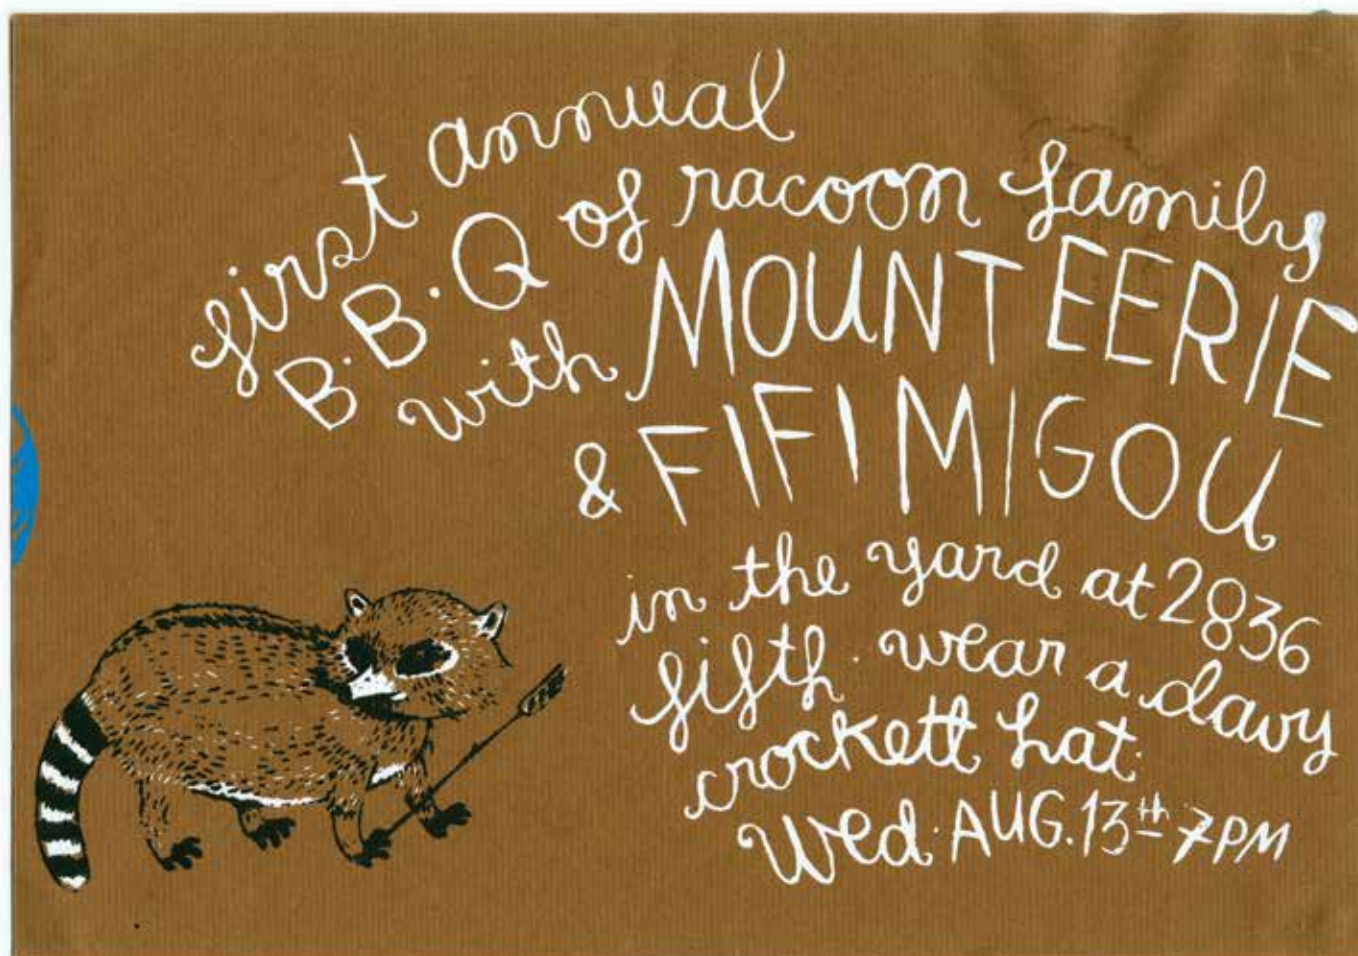 first annual
B.B.Q of racoon family
with MOUNT EERIE
& FIFI MIGOU
in the yard at 2836
fifth. wear a davy
crockett hat.
Wed. AUG. 13th 7PM